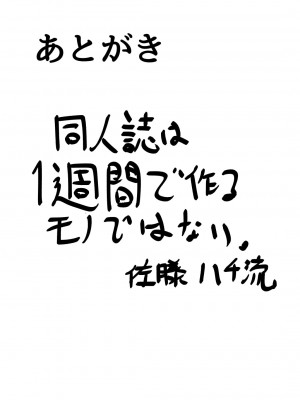 あとがき
同人誌は
1週間で作る
モノではない。
佐藤ハチ流